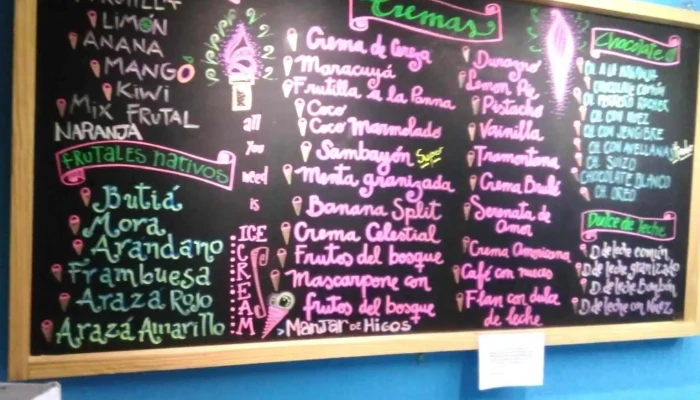 LIMÓN
ANANA
MANGO
KIWI
MIX FRUTAL
NARANJA
FRUTALES NATIVOS
Butiá
Mora
Arandano
Frambuesa
Arazá Rojo
Arazá Amarillo
all
You
need
is
ICE
CREAM
Cremas
Crema de Cereza
Maracuyá
Frutilla a la Panna
Coco
Coco Marmolado
Sambayón Super
Menta granizada
Banana Split
Crema Celestial
Frutos del bosque
Mascarpone con
frutos del bosque
Manjar de Higos
Durazno
Lemon Pie
Pistacho
Vainilla
Tramontana
Crema Brulé
Serenata de
Amor
Crema Americana
Café con nueces
Flan con dulce
de leche
Chocolate
CH. A LA NARANJA
CHOCOLATE COMÚN
CH. FERRERO ROCHER
CH. CON NUEZ
CH. CON JENGIBRE
CH. CON AVELLANA
CH. SUIZO
CHOCOLATE BLANCO
CH. OREO
Dulce de leche
D. de leche común
D. de leche granizado
D. de leche Bombón
D. de leche con Nuez